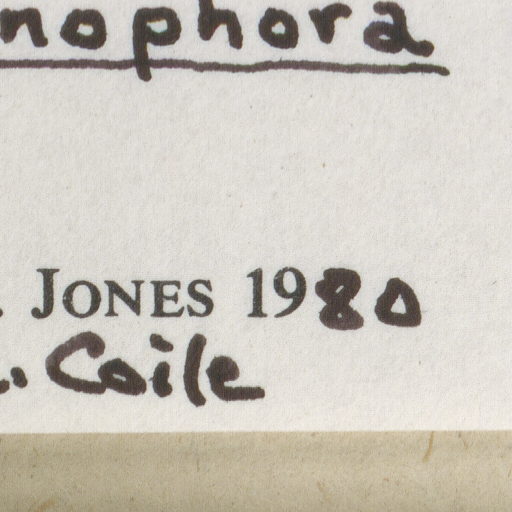 nophora
. JONES 1980
. Coile